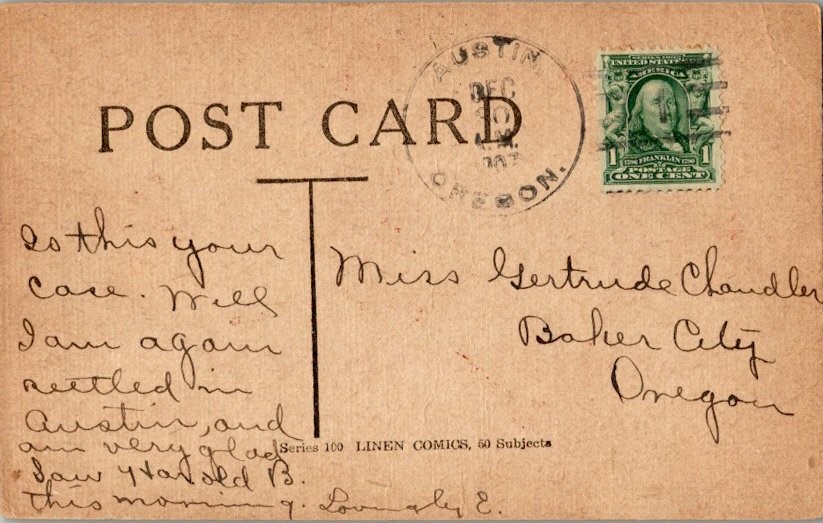 POST CARD
AUSTIN,
DEC
OREGON.
SERIES 1902
UNITED STATES
AMERICA
1 1790 FRANKLIN 1790 1
POSTAGE
ONE CENT
Is this your
case. Will
I am again
settled in
Austin, and
am very glad
Saw Harold B.
this morning. Lovingly E.
Miss Gertrude Chandler
Baker City
Oregon
Series 100 LINEN COMICS, 50 Subjects